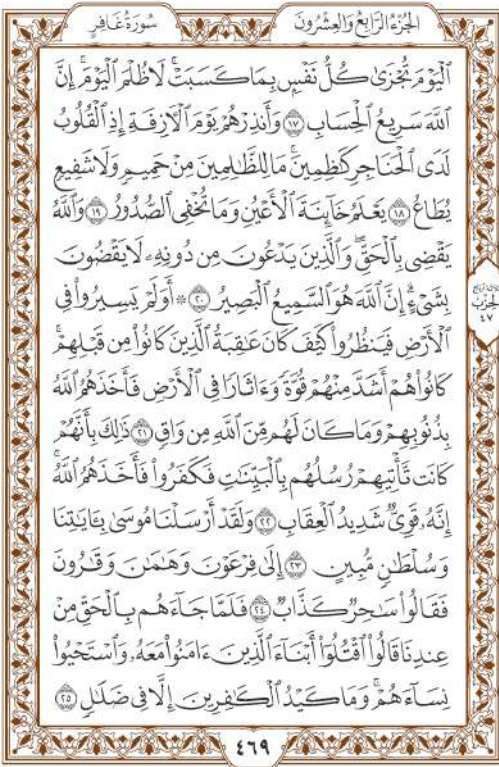 الجزء الرابع والعشرون
سورة غافر
ٱلۡيَوۡمَ تُجۡزَىٰ كُلُّ نَفۡسِۭ بِمَا كَسَبَتۡۚ لَا ظُلۡمَ ٱلۡيَوۡمَۚ إِنَّ
ٱللَّهَ سَرِيعُ ٱلۡحِسَابِ ١٧ وَأَنذِرۡهُمۡ يَوۡمَ ٱلۡأٓزِفَةِ إِذِ ٱلۡقُلُوبُ
لَدَى ٱلۡحَنَاجِرِ كَٰظِمِينَۚ مَا لِلظَّٰلِمِينَ مِنۡ حَمِيمٖ وَلَا شَفِيعٖ
يُطَاعُ ١٨ يَعۡلَمُ خَآئِنَةَ ٱلۡأَعۡيُنِ وَمَا تُخۡفِي ٱلصُّدُورُ ١٩ وَٱللَّهُ
يَقۡضِي بِٱلۡحَقِّۖ وَٱلَّذِينَ يَدۡعُونَ مِن دُونِهِۦ لَا يَقۡضُونَ
بِشَيۡءٍۗ إِنَّ ٱللَّهَ هُوَ ٱلسَّمِيعُ ٱلۡبَصِيرُ ٢٠ ۞ أَوَلَمۡ يَسِيرُواْ فِي
ٱلۡأَرۡضِ فَيَنظُرُواْ كَيۡفَ كَانَ عَٰقِبَةُ ٱلَّذِينَ كَانُواْ مِن قَبۡلِهِمۡۚ
كَانُواْ هُمۡ أَشَدَّ مِنۡهُمۡ قُوَّةٗ وَءَاثَارٗا فِي ٱلۡأَرۡضِ فَأَخَذَهُمُ ٱللَّهُ
بِذُنُوبِهِمۡ وَمَا كَانَ لَهُم مِّنَ ٱللَّهِ مِن وَاقٖ ٢١ ذَٰلِكَ بِأَنَّهُمۡ
كَانَت تَّأۡتِيهِمۡ رُسُلُهُم بِٱلۡبَيِّنَٰتِ فَكَفَرُواْ فَأَخَذَهُمُ ٱللَّهُۚ
إِنَّهُۥ قَوِيّٞ شَدِيدُ ٱلۡعِقَابِ ٢٢ وَلَقَدۡ أَرۡسَلۡنَا مُوسَىٰ بِـَٔايَٰتِنَا
وَسُلۡطَٰنٖ مُّبِينٍ ٢٣ إِلَىٰ فِرۡعَوۡنَ وَهَٰمَٰنَ وَقَٰرُونَ
فَقَالُواْ سَٰحِرٞ كَذَّابٞ ٢٤ فَلَمَّا جَآءَهُم بِٱلۡحَقِّ مِنۡ
عِندِنَا قَالُواْ ٱقۡتُلُوٓاْ أَبۡنَآءَ ٱلَّذِينَ ءَامَنُواْ مَعَهُۥ وَٱسۡتَحۡيُواْ
نِسَآءَهُمۡۚ وَمَا كَيۡدُ ٱلۡكَٰفِرِينَ إِلَّا فِي ضَلَٰلٖ ٢٥
الحزب
٤٧
٤٦٩